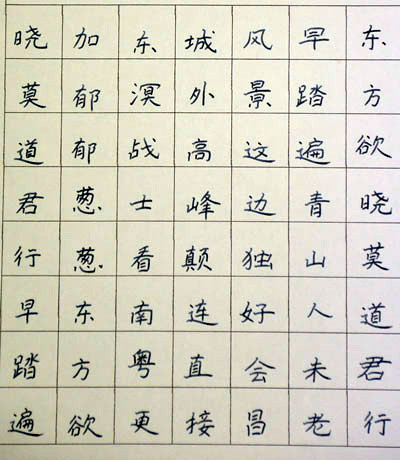 东方欲晓莫道君行
早踏遍青山人未老
风景这边独好会昌
城外高峰颠连直接
东溟战士看南粤更
加郁郁葱葱东方欲
晓莫道君行早踏遍